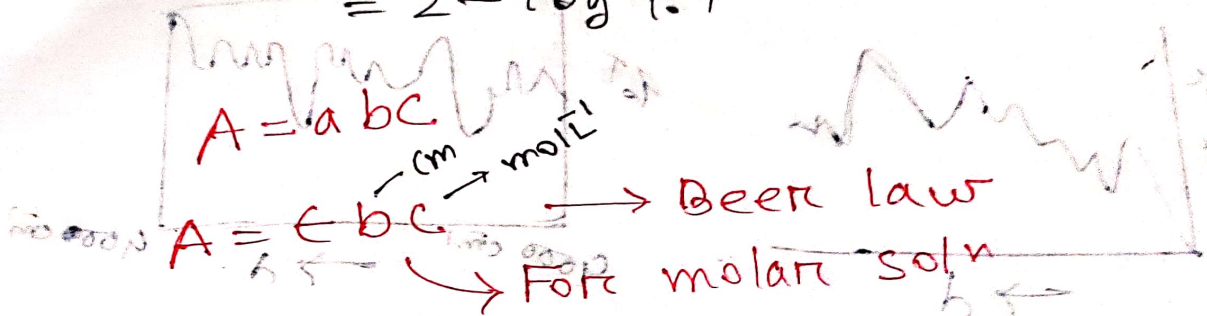 = 2 - log %T
A = a bC
cm mol L⁻¹
A = ϵ b c → Beer law
→ For molar soln